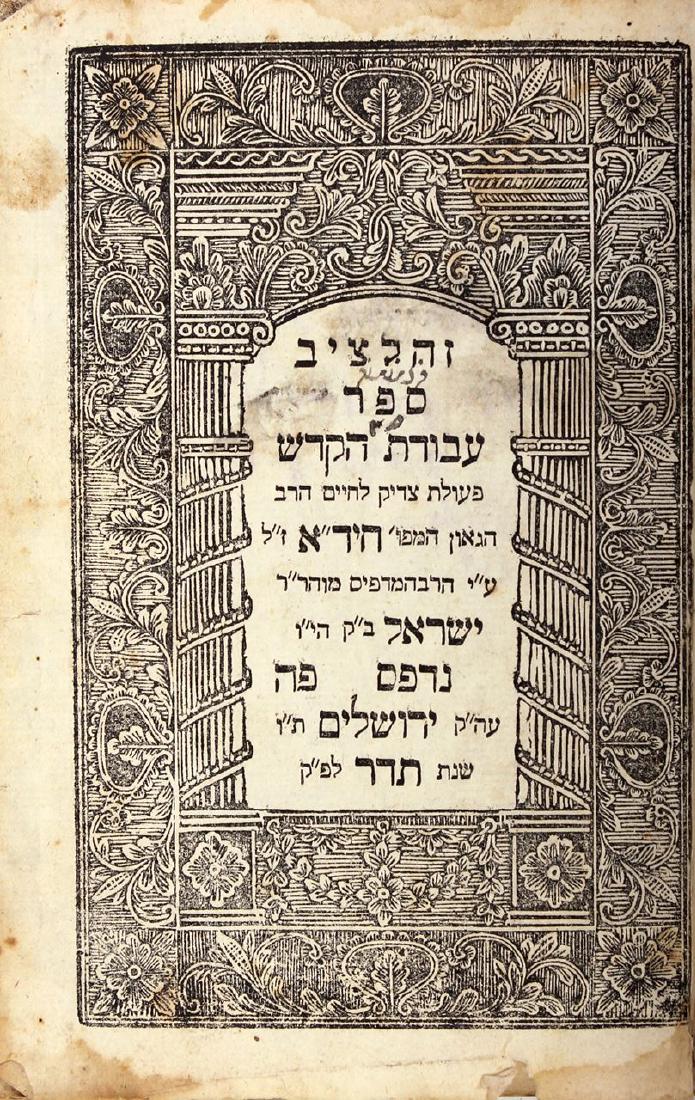 זה לי ציב
ספר
עבודת הקדש
פעולת צדיק לחיים הרב
הגאון המפו׳ חיד״א ז״ל
ע״י הרבהמדפיס מוהר״ר
ישראל ב״ק הי״ו
נדפס פה
עה״ק ירושלים ת״ו
שנת תדר לפ״ק